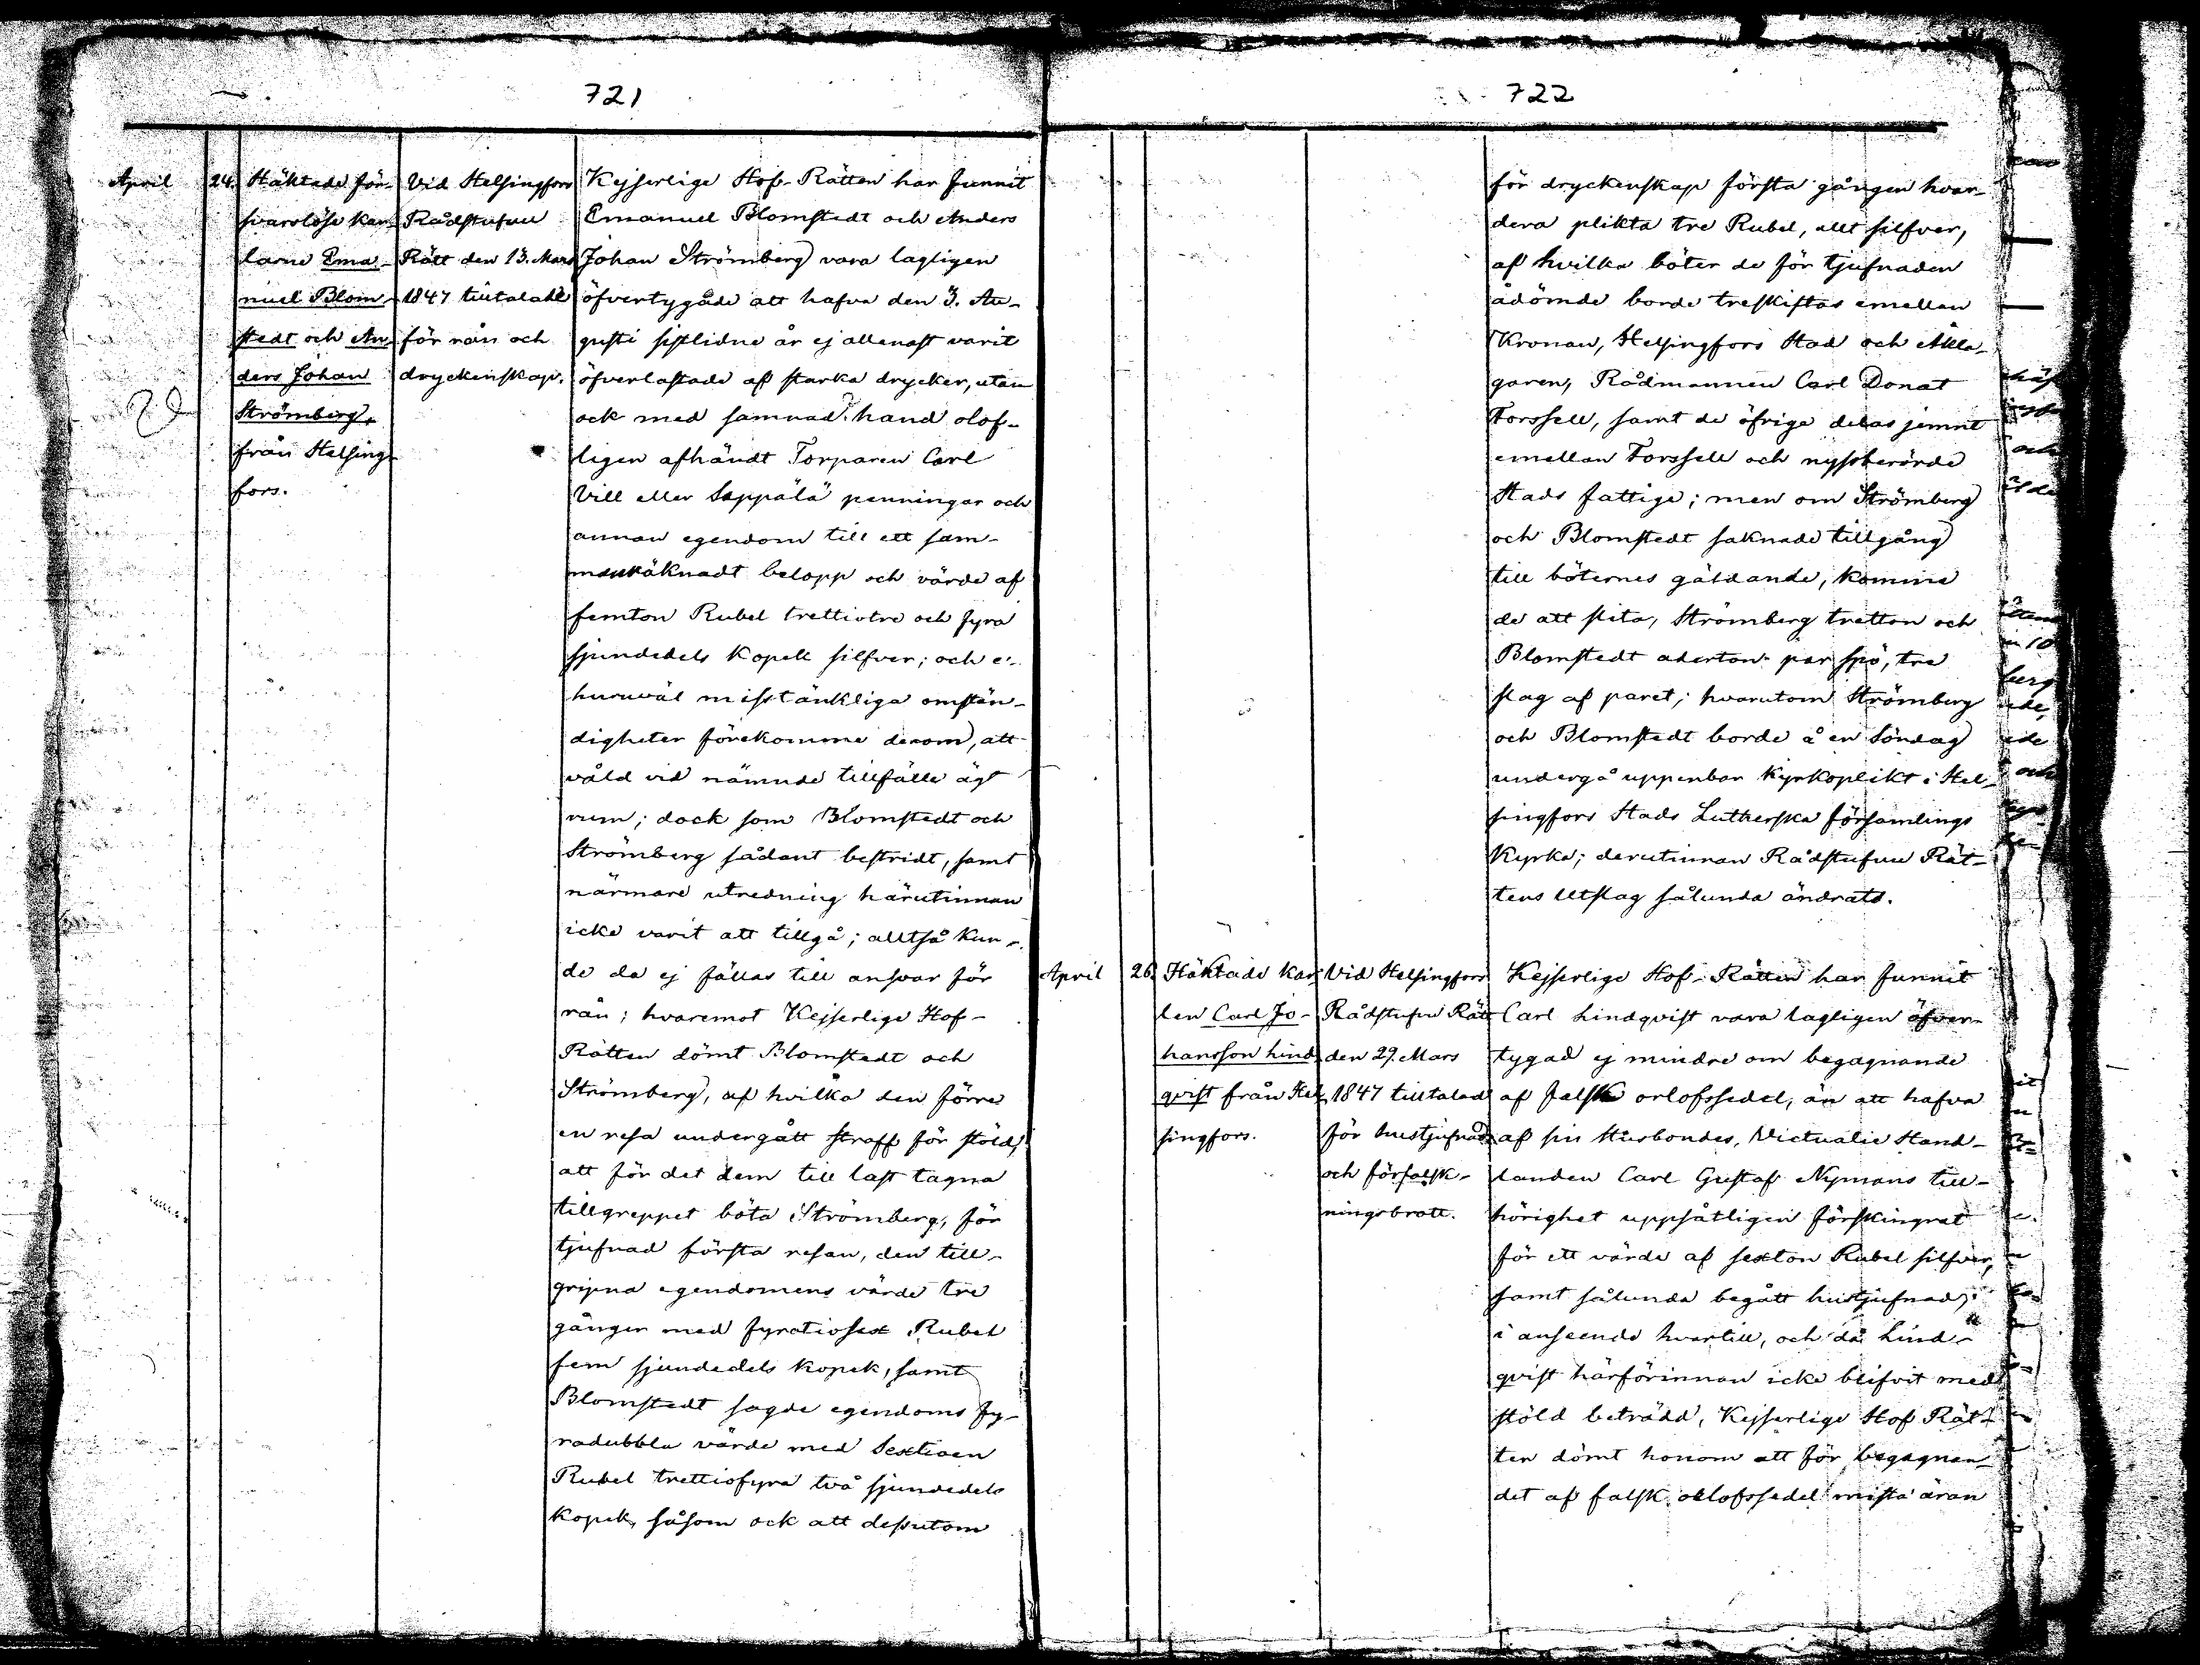 721
April
24.
Häktade för-
svarslöse kar-
larne Ema-
nuel Blom-
stedt och An-
ders Johan
Strömberg,
från Helsing-
fors.
Vid Helsingfors
Rådstufvu
Rätt den 13. Mars
1847 tilltalade
för rån och
dryckenskap.
Kejserlige Hof-Rätten har funnit
Emanuel Blomstedt och Anders
Johan Strömberg vara lagligen
öfvertygade att hafva den 3. Au-
gusti sistlidne år ej allenast varit
öfverlastade af starka drycker, utan
ock med samnad hand olof-
ligen afhändt Torparen Carl
Vill eller Seppälä penningar och
annan egendom till ett sam-
manräknadt belopp och värde af
femton Rubel trettiotre och fyra
sjundedels kopek silfver; och e-
huruväl misstänkliga omstän-
digheter förekomme derom, att
våld vid nämnde tillfälle ägt
rum; dock som Blomstedt och
Strömberg sådant bestridt, samt
närmare utredning härutinnan
icke varit att tillgå; alltså kun-
de de ej fällas till ansvar för
rån; hvaremot Kejserlige Hof-
Rätten dömt Blomstedt och
Strömberg, af hvilka den förre
en resa undergått straff för stöld,
att för det dem till last tagna
tillgreppet böta Strömberg, för
tjufnad första resan, den till-
gripna egendomens värde tre
gånger med fyratiosex Rubel
fem sjundedels kopek, samt
Blomstedt sagde egendoms fy-
radubbla värde med Sextioen
Rubel trettiofyra två sjundedels
kopek, såsom ock att dessutom
722
för dryckenskap första gången hvar-
dera plikta tre Rubel, allt silfver,
af hvilka böter de för tjufnaden
ådömde borde treskiftas emellan
Kronan, Helsingfors Stad och Åkla-
garen, Rådmannen Carl Donat
Forssell, samt de öfriga delas jemnt
emellan Forssell och nyssberörde
Stads fattige; men om Strömberg
och Blomstedt saknade tillgång
till böternes gäldande, komme
de att slita, Strömberg tretton och
Blomstedt aderton par spö, tre
slag af paret; hvarutom Strömberg
och Blomstedt borde å en Söndag
undergå uppenbar kyrkoplikt i Hel-
singfors Stads Lutherska församlings
Kyrka; derutinnan Rådstufvu Rät-
tens utslag sålunda ändrats.
April
26.
Häktade Kar-
len Carl Jo-
hansson Lind-
qvist från Hel-
singfors.
Vid Helsingfors
Rådstufvu Rätt
den 29. Mars
1847 tilltalad
för hustjufnad
och förfalsk-
ningsbrott.
Kejserlige Hof-Rätten har funnit
Carl Lindqvist vara lagligen öfver-
tygad ej mindre om begagnande
af falsk orlofssedel, än att hafva
af sin Husbondes, Victualie Hand-
landen Carl Gustaf Nymans till-
hörighet uppsåtligen förskingrat
för ett värde af sexton Rubel silfver,
samt sålunda begått hustjufnad;
i anseende hvartill, och då Lind-
qvist härförinnan icke blifvit med
stöld beträdd, Kejserlige Hof Rät-
ten dömt honom att för begagnan-
det af falsk orlofssedel mista äran